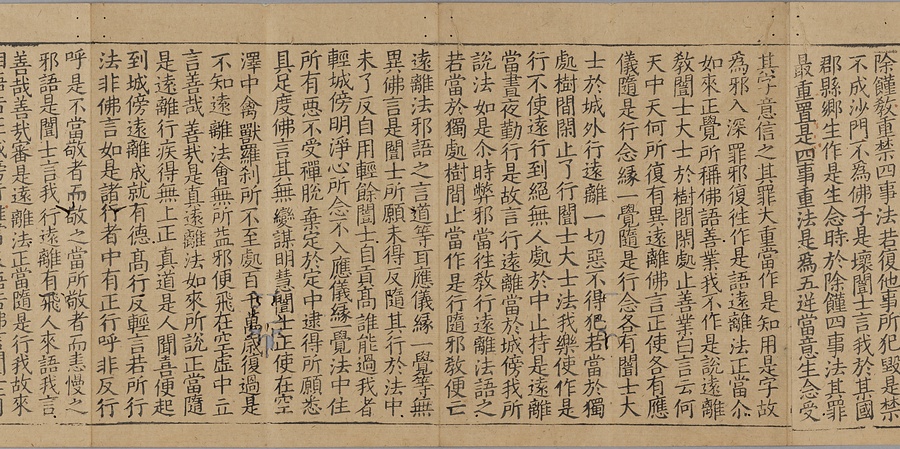 除饉敎重禁四事法若復他事所犯毀是禁
不成沙門不為佛子是壞闓士言我於某國
郡縣鄉生作是生念時於除饉四事法其罪
最重置是四事重法是為五逆當意生念受
其字意信之其罪大重當作是知用是字故
為邪入深罪邪復往作是語遠離法正當尒
如來正覺所稱佛語善業我不作是說遠離
敎闓士大士於樹間閑處止善業白言云何
天中天何所復有異遠離佛言正使各有應
儀隨是行念緣一覺隨是行念各有闓士大
士於城外行遠離一切惡不得犯若當於獨
處樹間閑止了行闓士大士法我樂使作是
行不使遠行到絕無人處於中止持是遠離
當晝夜勤行是故言行遠離當於城傍我所
說法如是尒時弊邪當往敎行遠離法語之
若當於獨處樹間止當作是行隨邪敎便亡
遠離法邪語之言道等耳應儀緣一覺等無
異佛言是闓士所願未得反隨其行於法中
未了反自用輕餘闓士自貢高誰能過我者
輕城傍明淨心所念不入應儀緣一覺法中住
所有惡不受禪脫棄定於定中逮得所願悉
具足度佛言其無變謀明慧闓士正使在空
澤中禽獸羅剎所不至處百千萬歲復過是
不知遠離法會無所益邪便飛在空虛中立
言善哉善哉是真遠離法如來所說正當隨
是遠離行疾得無上正真道是人聞喜便起
到城傍遠離成就有德高行反輕言若所行
法非佛言如是諸行者中有正行呼非反行
呼是不當敬者而敬之當所敬者而恚慢之
邪語是闓士言我行遠離有飛人來語我言
善哉善哉審是遠離法正當隨是行我故來